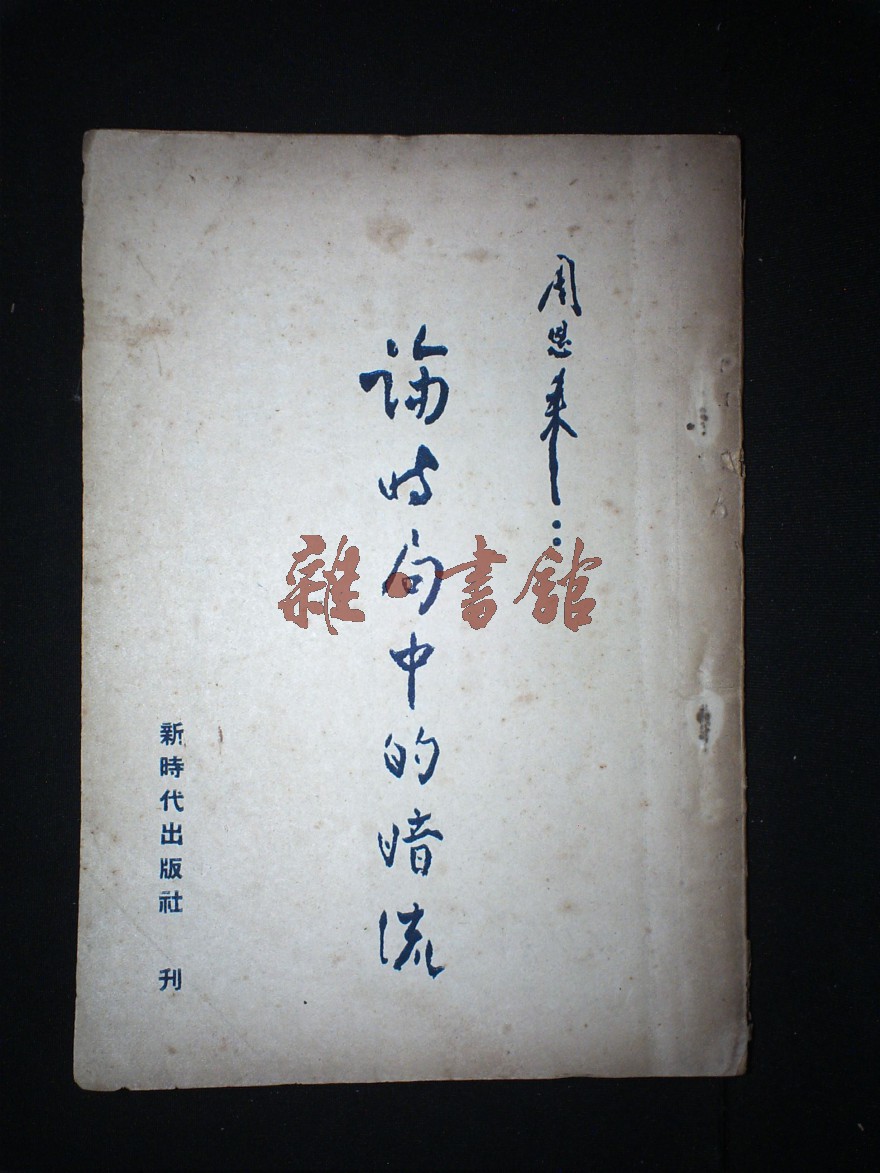 周恩来：
論时局中的暗流
新時代出版社 刊
雜·書館